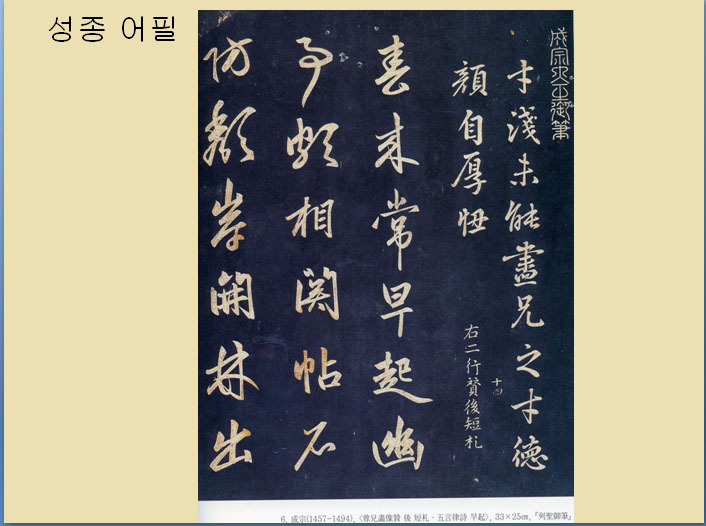 성종 어필
成宗大王御筆
才淺未能盡兄之才德
顔自厚忸
右二行贊後短札
十四
春來常早起幽
事頗相関帖石
防頹岸開林出
6. 成宗(1457-1494), 〈尊兄畫像贊 後 短札 · 五言律詩 早起〉, 33×25㎝, 『列聖御筆』